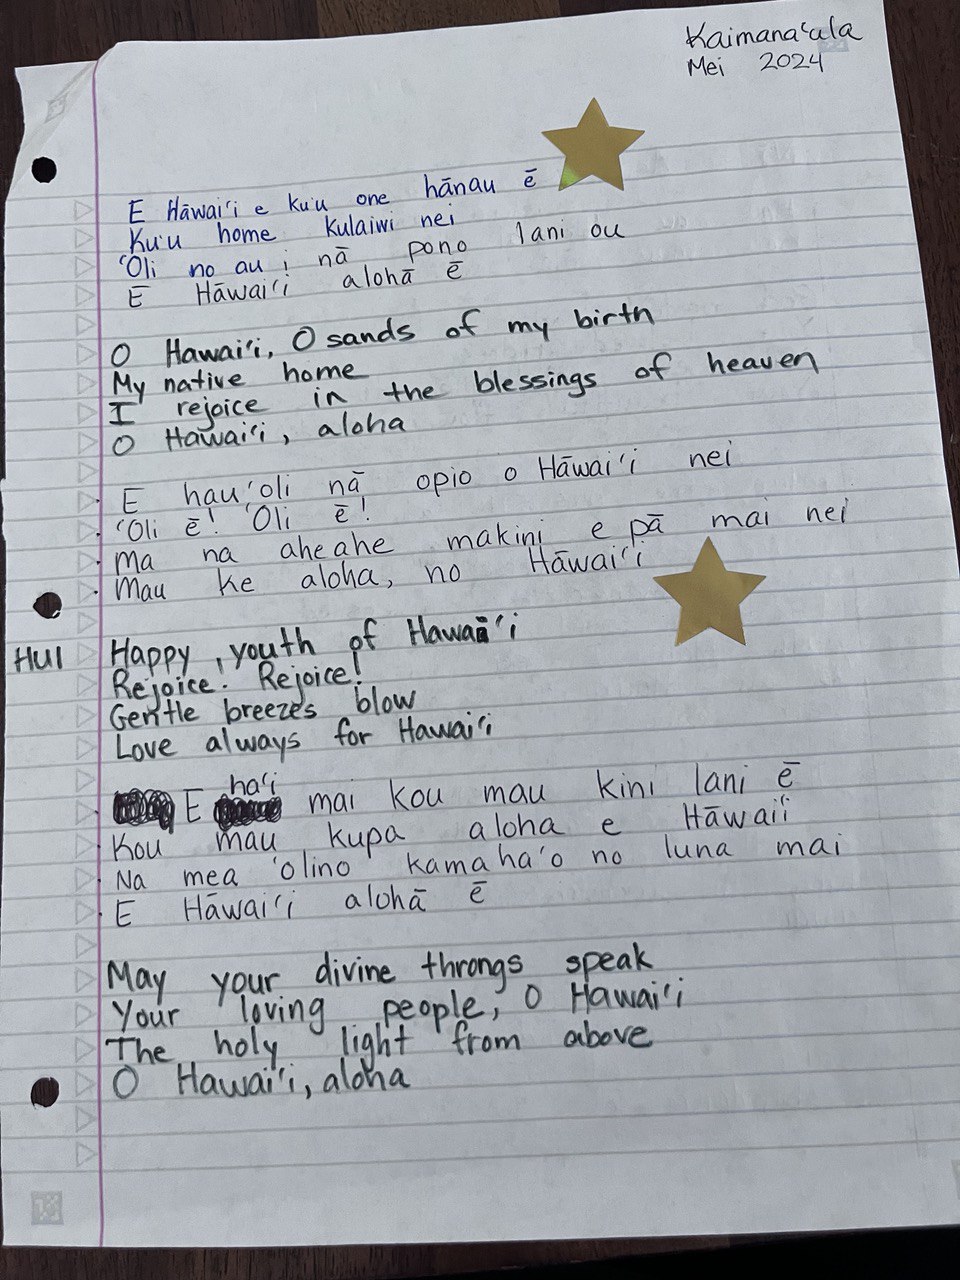 Kaimanaʻula
Mei 2024
E Hāwaiʻi e kuʻu one hānau ē
Kuʻu home kulaiwi nei
ʻOli no au i nā pono lani ou
Ē Hāwaiʻi alohā ē
O Hawaiʻi, O sands of my birth
My native home
I rejoice in the blessings of heaven
O Hawaiʻi, aloha
E hauʻoli nā opio o Hāwaiʻi nei
ʻOli ē! ʻOli ē!
Ma na aheahe makini e pā mai nei
Mau ke aloha, no Hāwaiʻi
HUI
Happy, youth of Hawaiʻi
Rejoice! Rejoice!
Gentle breezes blow
Love always for Hawaiʻi
E haʻi mai kou mau kini lani ē
Kou mau kupa aloha e Hāwaiʻi
Na mea ʻolino kamahaʻo no luna mai
E Hāwaiʻi alohā ē
May your divine throngs speak
Your loving people, O Hawaiʻi
The holy light from above
O Hawaiʻi, aloha